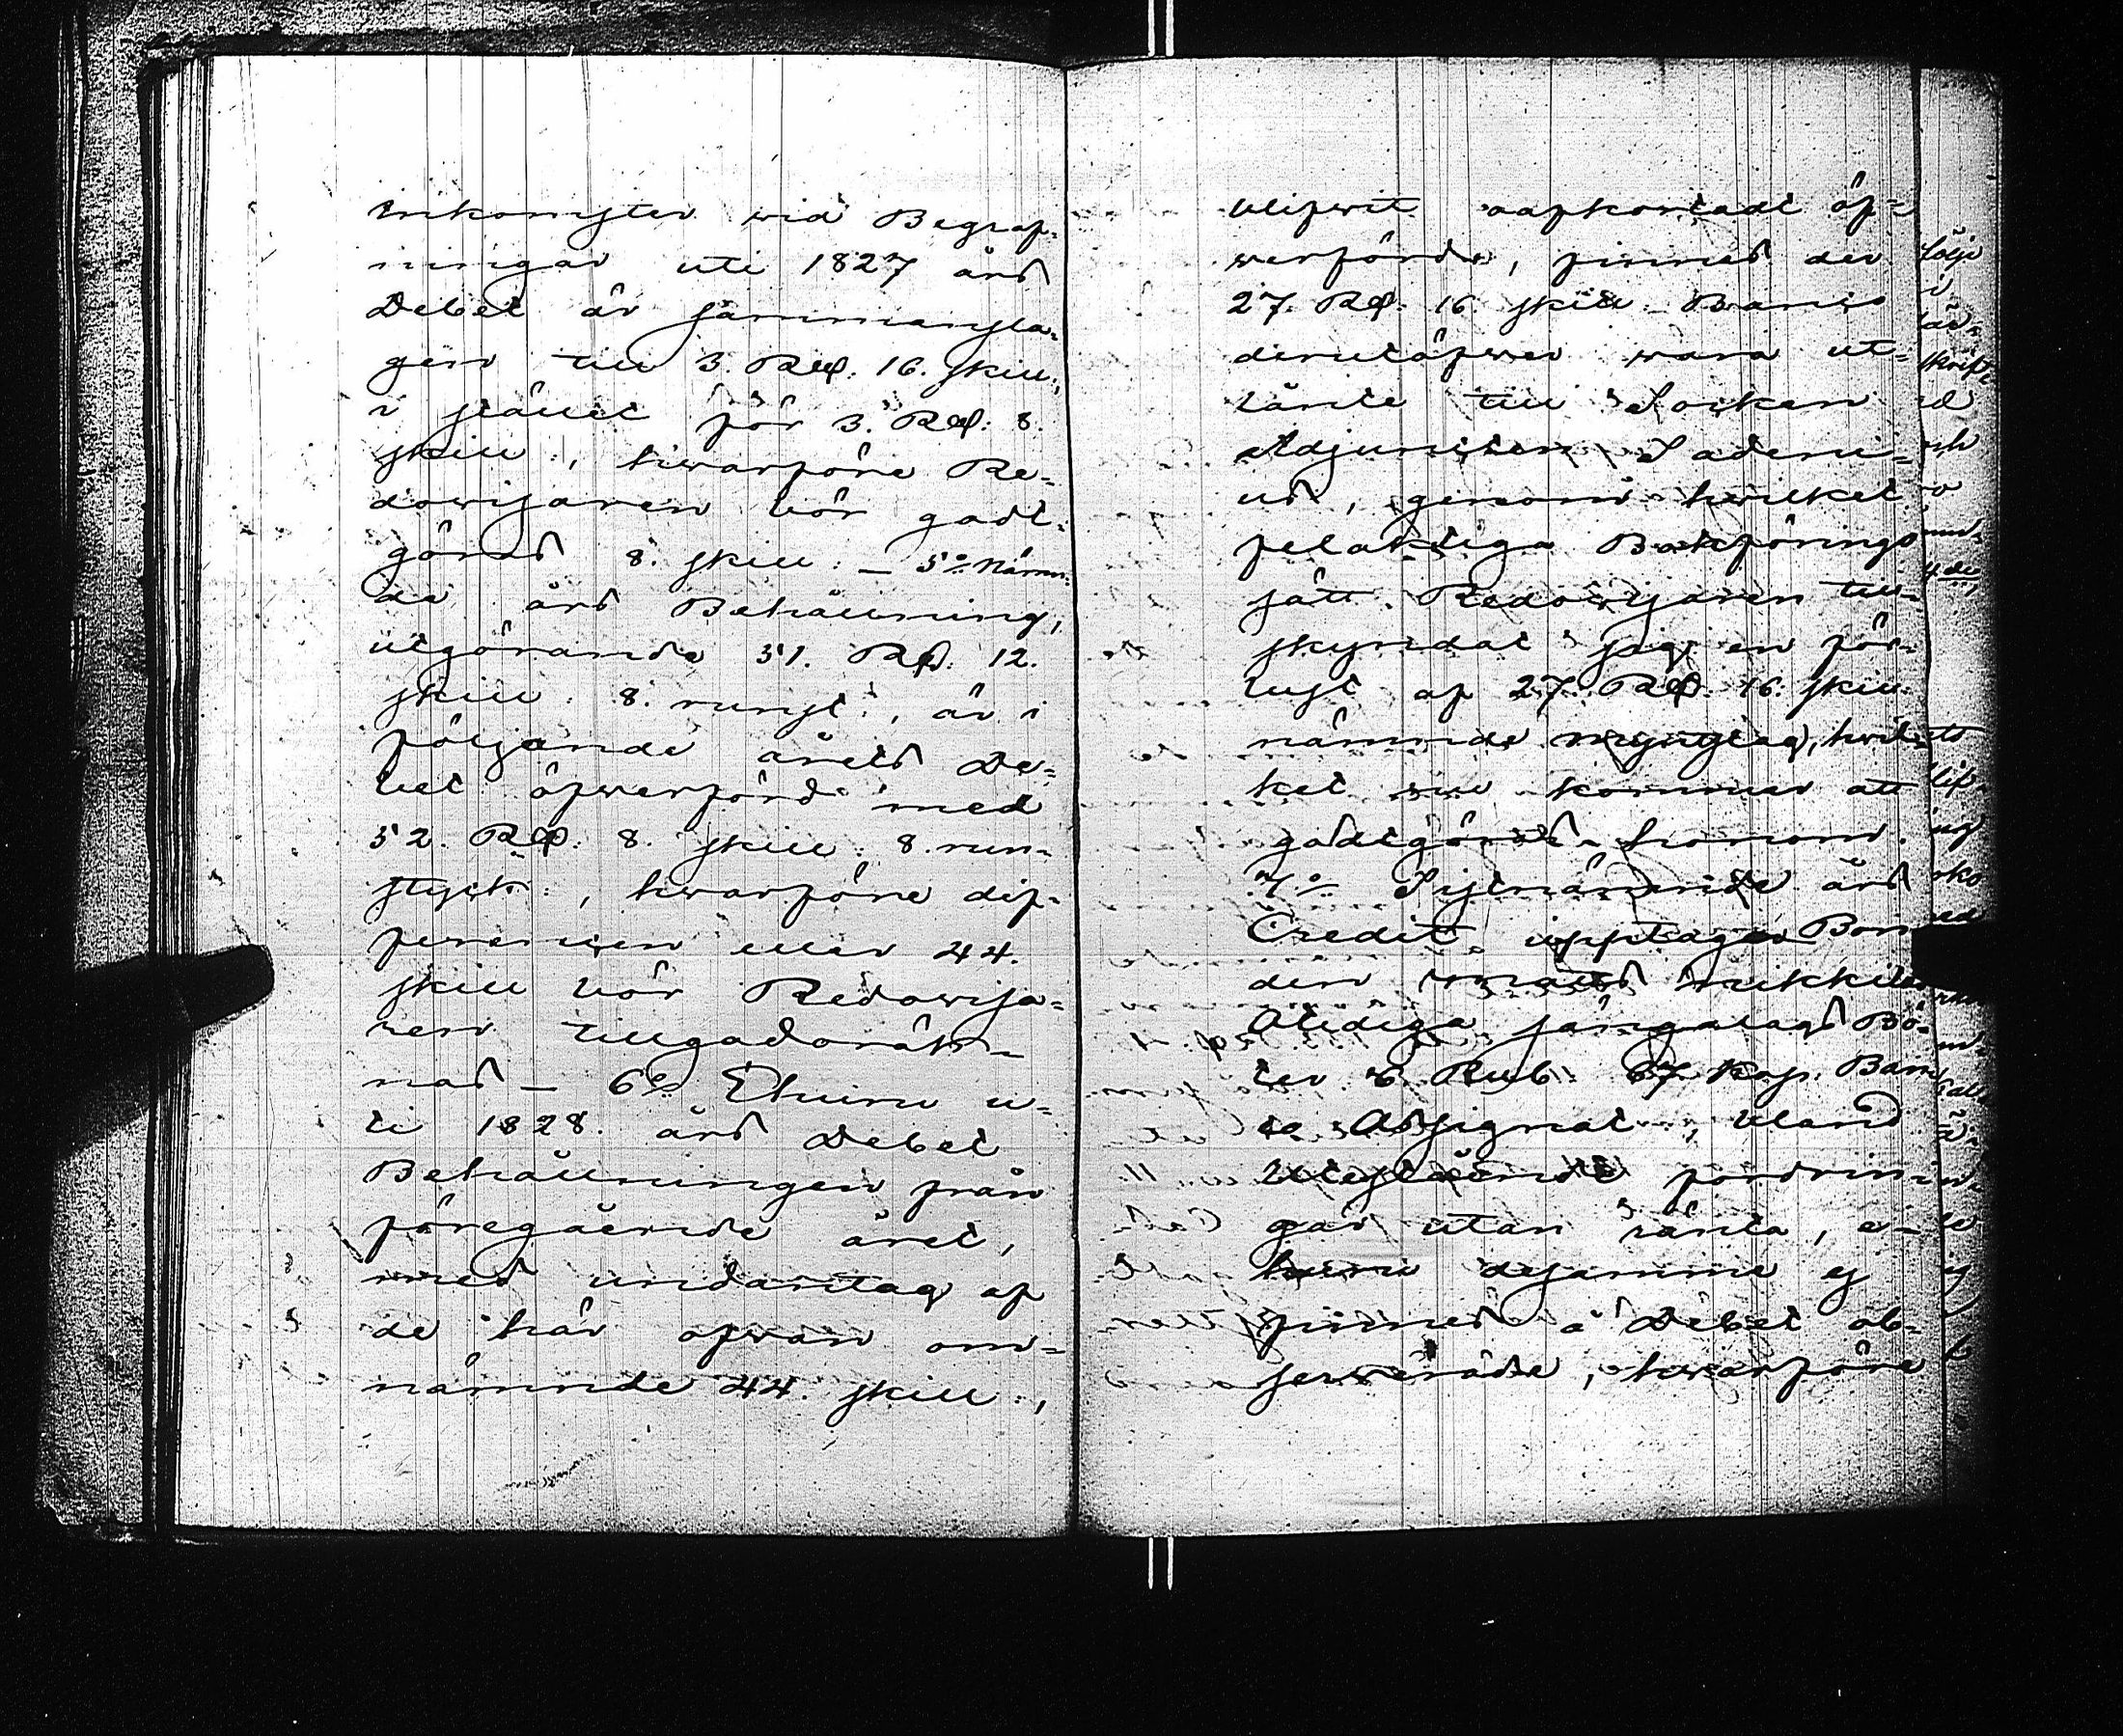 inkomster wid Begraf-
ningar uti 1827 års
Debet är sammansla-
gen till 3. Rd. 16. skill:,
i stället för 3. Rd. 8.
skill:, hwarföre Re-
dowisaren bör godt-
göras 8. skill: — 5:o Nämn-
de års Behållning,
utgörande 51. Rd. 12.
skill: 8. runst:, är i
följande årets De-
bet öfwerförd med
52. Rd. 8. skill: 8. run-
styck:, hwarföre dif-
ferencen eller 44.
skill bör Redowisa-
ren tillgodoräk-
nas — 6:o Ehuru u-
ti 1828. års Debet
Behållningen från
föregående året,
med undantag af
de här ofwan om-
nämnde 44. skill:,
blifwit oafkortadt öf-
werförde, finnes der
27. Rd. 16. skill. Banco
derutöfwer wara ut-
lånte till Socken
Adjuncten Sadeni-
us, genom hwilket
felaktiga Bokförings
sätt Redowisaren till-
skyndat sig en för-
lust af 27. Rd. 16. skill:
nämnde myntslag, hwil-
ket nu kommer att
godtgöras honom.
7:o Sistnämnde års
Credit upptager Bon-
den
Åtidiga sängalags Bö-
ter 6 Rub. 67 Kop. Banc
to Assignat:, bland
Utestående fordrin
gar utan ränta, e-
huru desamme ej
finnes å Debet ob-
serverade, hwarföre